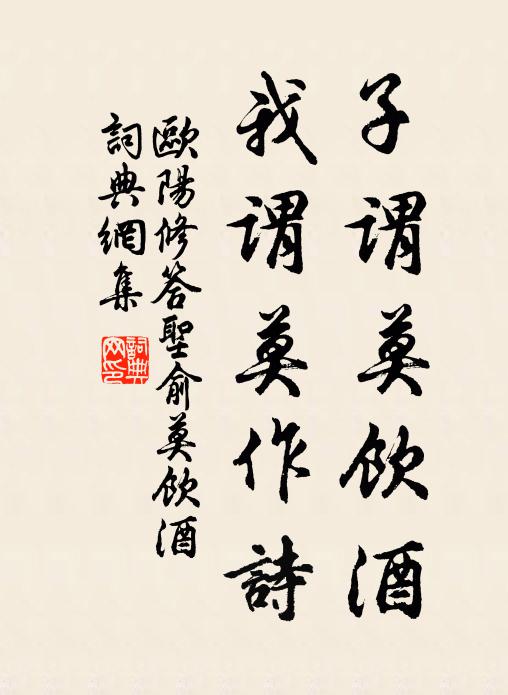 子謂莫飲酒
我謂莫作詩
歐陽修答聖俞莫飲酒
詞典網集
詞典
网印